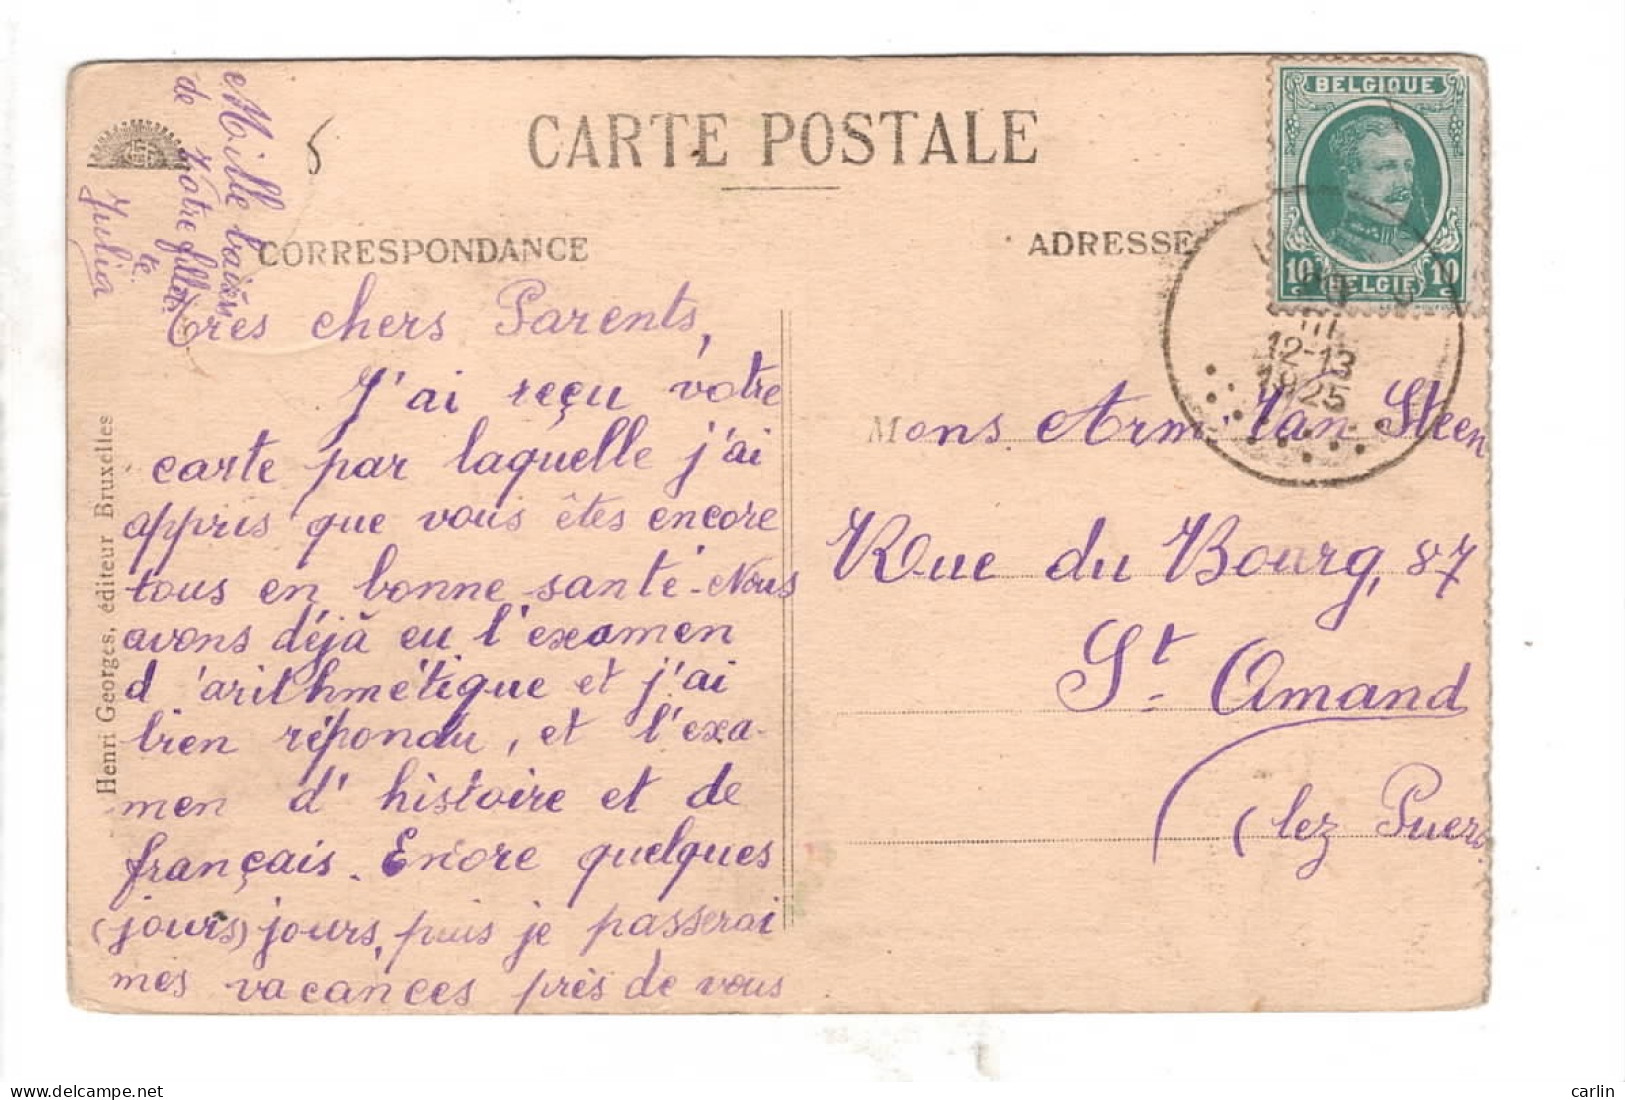 CARTE POSTALE
CORRESPONDANCE
ADRESSE
BELGIQUE
10 c BELGIE 10 c
12-13
1925
5
Très chers Parents,
J'ai reçu votre
carte par laquelle j'ai
appris que vous êtes encore
tous en bonne santé. Nous
avons déjà eu l'examen
d'arithmétique et j'ai
bien répondu, et l'exa-
men d'histoire et de
français. Encore quelques
(jours) jours, puis je passerai
mes vacances près de vous
Mille baisers
de votre fillette
Julia
Mons Arm. Van Steen
Rue du Bourg, 87
St. Amand
(lez Puers
Henri Georges, éditeur Bruxelles
carlin